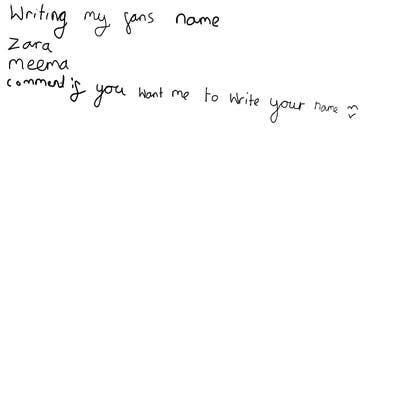 Writing my fans name
Zara
meema
comment if you want me to write your name